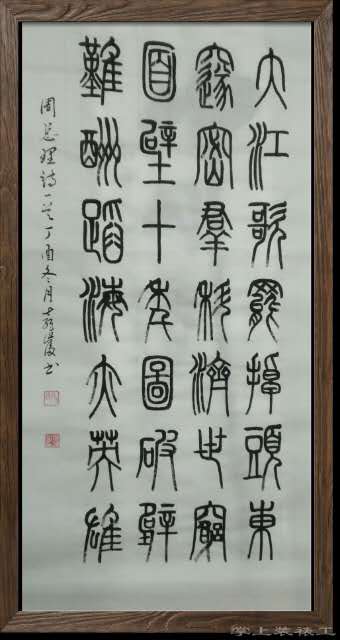 大江歌罷掉頭東
邃密羣科濟世窮
面壁十年圖破壁
難酬蹈海亦英雄
周总理詩一首丁酉冬月书
掌上装裱工